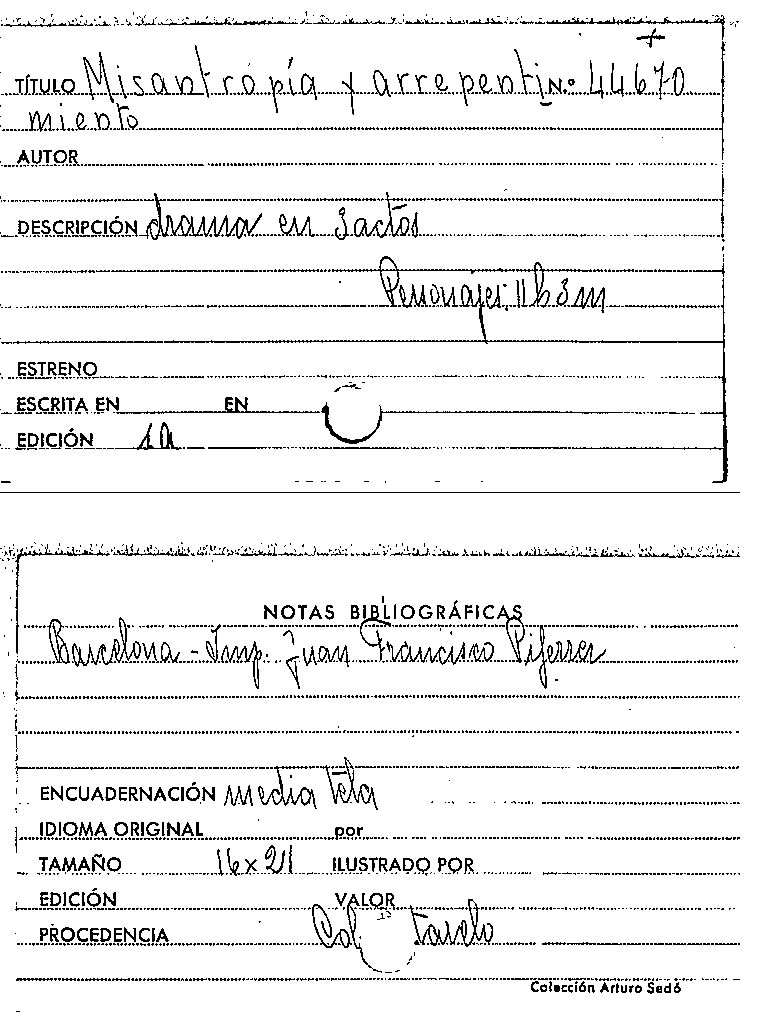 +
TÍTULO Misantropía y arrepenti N.º 44670
miento
AUTOR
DESCRIPCIÓN drama en 3 actos
Personajes: 11 h 3 m
ESTRENO
ESCRITA EN EN
EDICIÓN 1a
NOTAS BIBLIOGRÁFICAS
Barcelona - Imp. Juan Francisco Piferrer
ENCUADERNACIÓN media tela
IDIOMA ORIGINAL por
TAMAÑO 16 x 21 ILUSTRADO POR
EDICIÓN VALOR
PROCEDENCIA Col
Colección Arturo Sedó